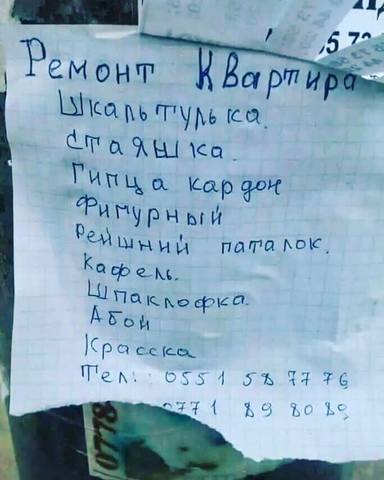 5 72
Ремонт Квартира
Шкальтулька.
стаяшка.
Гипца кардон
Фигурный
Рейшний паталок.
Кафель.
Шпаклофка.
Абой
Красска
Тел: 0551 58 77 76
0771 89 80 89
0778